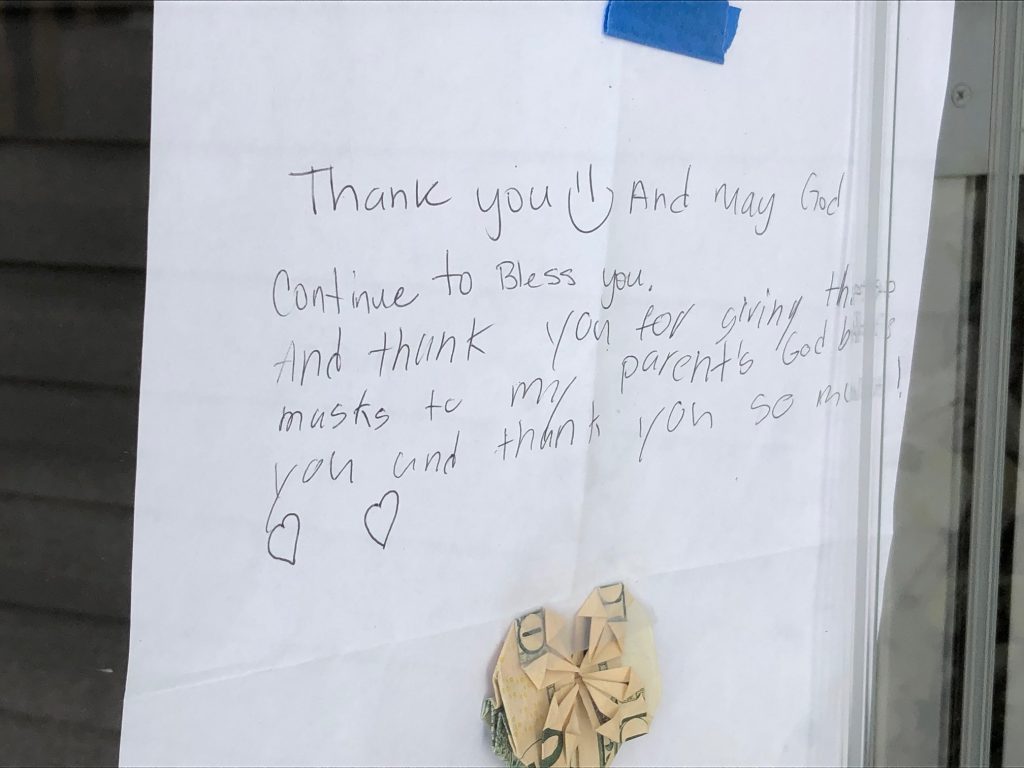 Thank you And may God
Continue to Bless you.
And thank you for giving
masks to my parent's God
you and thank you so !